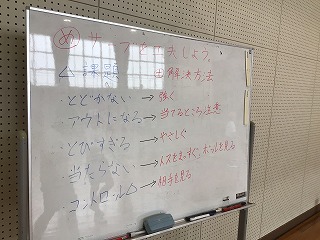 め サーブを工夫しよう。
△課題 解決方法
・とどかない→強く
・アウトになる→当てるところ注意
・とびすぎる→やさしく
・当たらない→トスをまっすぐ、ボールを見る
・コントロール△→相手を見る